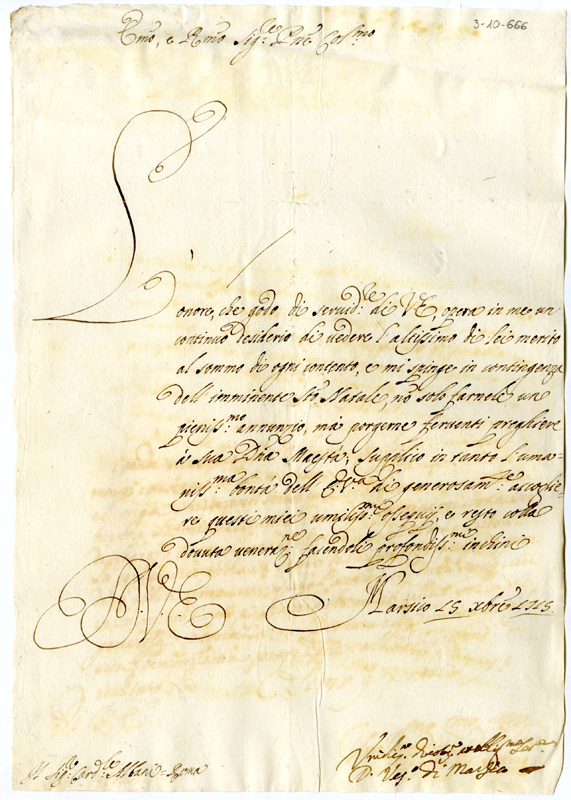 3-10-666
Em̃o, e Rm̃o Sig.re Pñe Col.mo
L'onore, che godo di servid.re al V.E. opera in me un
continuo desiderio di vedere l'altissimo di lei merito
al sommo di ogni contento, e mi spinge in contingenza
dell'imminente Sto Natale, nõ solo farnele un
pieniss.mo annunzio, mà porgerne ferventi preghiere
à sua Dña Maestà; Supplico in tanto l'uma-
niss.ma bontà dell'E.V.a di generosam.te accoglie-
re questi miei umiliss.mi ossequij, e resto colla
dovuta veneraz.ne facendole profondiss.mi inchini
D.V.E.
Marsico 15 xbre 1715
Sig.r Card.le Albani = Roma
D. Ves.o di Marsico